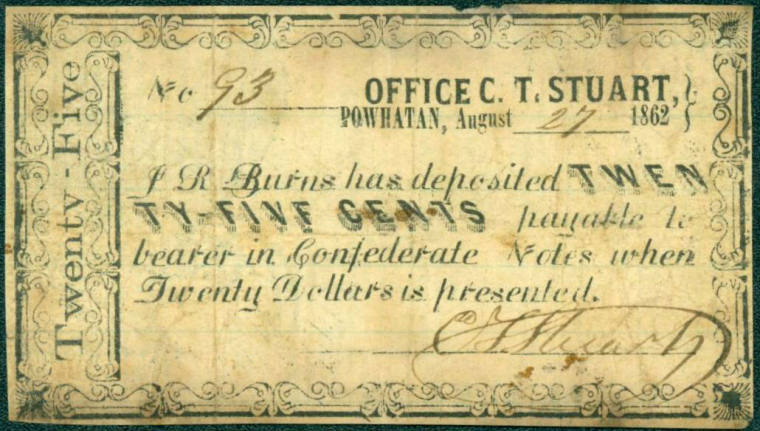 Twenty-Five
No 93 OFFICE C. T. STUART,
POWHATAN, August 27 1862
J R Burns has deposited TWEN
TY-FIVE CENTS payable to
bearer in Confederate Notes when
Twenty Dollars is presented.
C. T. Stuart